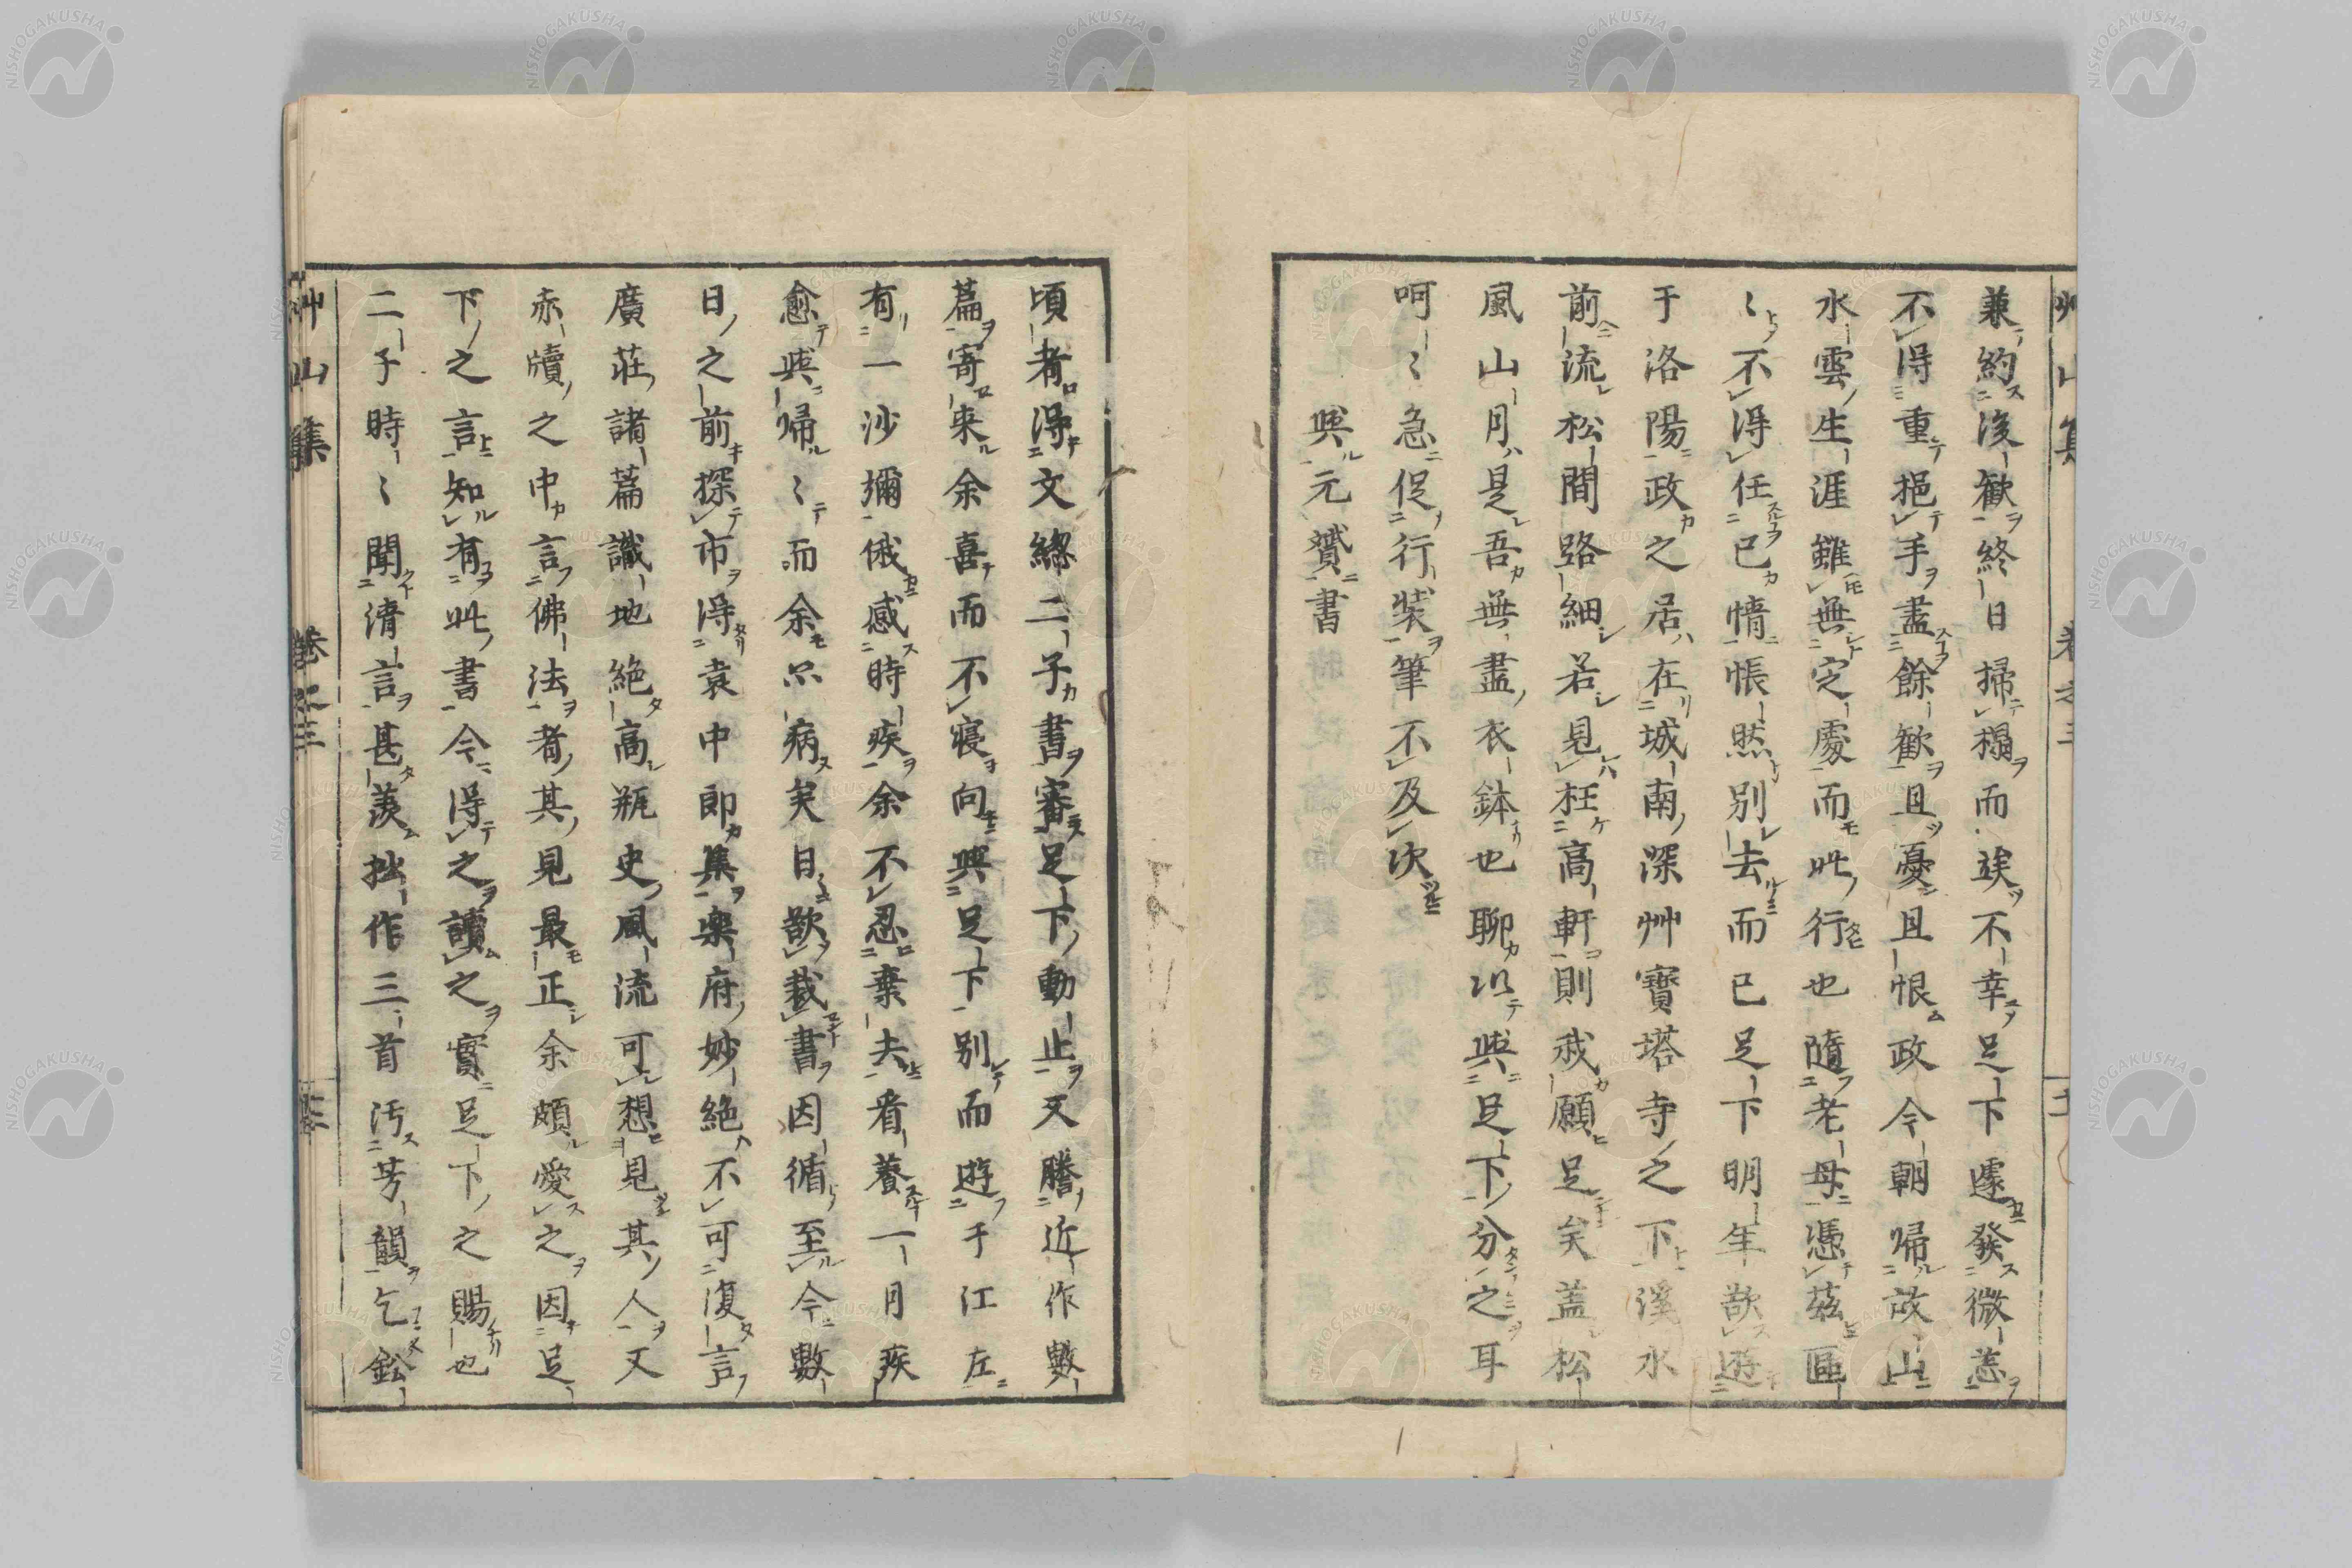 艸山集 卷之三
兼約後歡終日掃榻而竢不幸足下遽發微恙
不得重挹手盡餘歡且憂且恨政今朝帰故山
水雲生涯雖無定處而此行也隨老母憑茲區
〻不得任已情悵然別去而已足下明年欲遊
于洛陽政之居在城南深艸寶塔寺之下溪水
前流松間路細若見枉高軒則我願足矣蓋松
風山月是吾無盡衣鉢也聊以與足下分之耳
呵〻急促行裝筆不及次
與元贇書
頃者淂文緫二子書審足下動止又謄近作數
篇寄来余喜而不寝向與足下別而遊于江左
有一沙彌俄感時疾余不忍棄去看養一月疾
愈與帰〻而余亦病矣日欲裁書因循至今數
日之前探市淂袁中郎集楽府妙絶不可復言
廣莊諸篇識地絶高瓶史風流可想見其人又
赤牘之中言佛法者其見最正余頗愛之因足
下之言知有此書今淂之讀之實足下之賜也
二子時〻聞清言甚羨拙作三首汚芳韻乞鈆
艸山集 卷之三
NISHOGAKUSHA